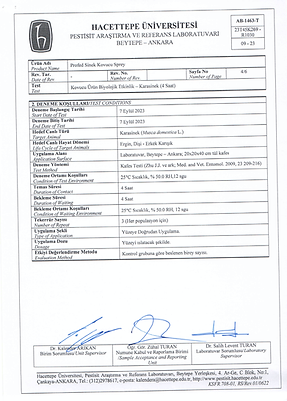 HACETTEPE ÜNİVERSİTESİ
PESTİSİT ARAŞTIRMA VE REFERANS LABORATUVARI
BEYTEPE – ANKARA
AB-1463-T
23TS58209-
R1010
09 - 23
Ürün Adı
Product Name
Profed Sinek Kovucu Sprey
Rev. Tar.
Date of Rev.
-
Rev. No.
Number of Rev.
-
Sayfa No
Page Number
4/6
Test
Test
Kovucu Ürün Biyolojik Etkinlik – Karasinek (4 Saat)
2. DENEME KOŞULLARI/TEST CONDITIONS
Deneme Başlangıç Tarihi
Start Date of Test
7 Eylül 2023
Deneme Bitiş Tarihi
End Date of Test
7 Eylül 2023
Hedef Canlı Türü
Target Animal
Karasinek (Musca domestica L.)
Hedef Canlı Hayat Dönemi
Life Cycle of Target Animals
Ergin, Dişi - Erkek Karışık
Uygulama Alanı
Application Surface
Laboratuvar, Beytepe – Ankara; 20x20x40 cm tül kafes
Deneme Yöntemi
Test Method
Kafes Testi (Zhu J.J. ve ark; Med. and Vet. Entomol. 2009, 23 209-216)
Deneme Ortamı Koşulları
Condition of Test Environment
25°C Sıcaklık, % 50.0 RH,12 sgu
Temas Süresi
Duration of Contact
4 Saat
Bekleme Süresi
Duration of Waiting
4 Saat
Bekleme Ortamı Koşulları
Condition of Waiting Environment
25°C Sıcaklık, % 50.0 RH, 12 sgu
Tekerrür Sayısı
Number of Repeat
3 (Her populasyon için)
Uygulama Şekli
Type of Application
Yüzeye Doğrudan Uygulama.
Uygulama Dozu
Dosage
Yüzeyi ıslatacak şekilde.
Etkiyi Değerlendirme Metodu
Evaluation Method
Kontrol grubuna göre belirlenen birey sayısı.
Dr. ARIKAN
Birim Sorumlusu Unit Supervisor
Öğr. Gör. Zuhal TURAN
Numune Kabul ve Raporlama Birimi
(Sample Acceptance and Reporting
Unit)
Dr. Salih Levent TURAN
Laboratuvar Sorumlusu Laboratory
Supervisor
Hacettepe Üniversitesi, Pestisit Araştırma ve Referans Laboratuvarı, Beytepe Yerleşkesi, 4. Ar-Ge, C Blok, No:1,
Çankaya-ANKARA, Tel: (312)2978617, e-posta:
KSFR 708-01, RS/Rev.01/0622